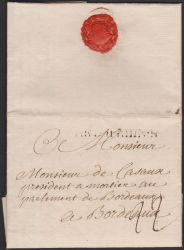 A Monsieur
Monsieur de Casaux
president a mortier au
parlement de Bordeaux
a Bordeaux